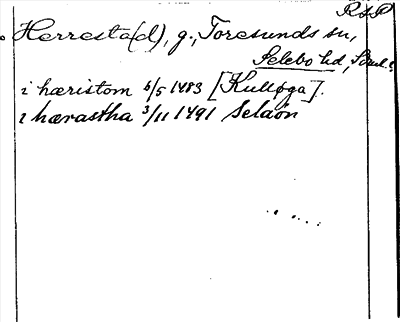 RAP
Herresta(d), g., Toresunds sn,
Selebo hd, Södl.
i hæristom 6/5 1483 [Kulløga].
i hærastha 3/11 1491 Selaön